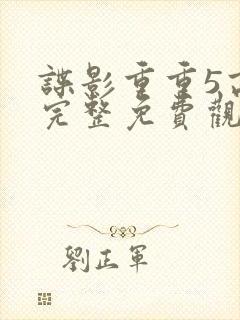 諜影重重5高
完整免費觀
劉正軍